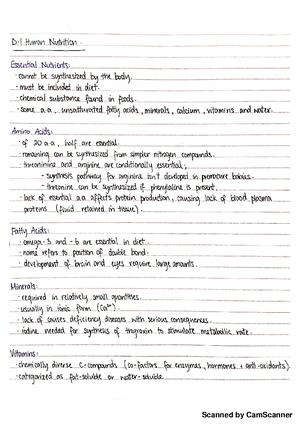 D.1 Human Nutrition
Essential Nutrients:
· cannot be synthesized by the body.
· must be included in diet.
· chemical substance found in foods.
· some a.a, unsaturated fatty acids, minerals, calcium, vitamins and water.
Amino Acids:
· of 20 a.a, half are essential.
· remaining can be synthesized from simpler nitrogen compounds.
· threonine and arginine are conditionally essential;
- synthesis pathway for arginine isn't developed in premature babies.
- threonine can be synthesized if phenylaline is present.
· lack of essential a.a affects protein production, causing lack of blood plasma
proteins (fluid retained in tissue).
Fatty Acids:
· omega-3 and -6 are essential in diet.
· name refers to position of double bond.
· development of brain and eyes require large amounts.
Minerals:
· required in relatively small quantities.
· usually in ionic form (Ca²⁺).
· lack of causes deficiency diseases with serious consequences.
· iodine needed for synthesis of thyroxin to stimulate metabolic rate.
Vitamins:
· chemically diverse c-compounds (co-factors for enzymes, hormones + anti-oxidants).
· categorized as fat-soluble or water-soluble.
Scanned by CamScanner